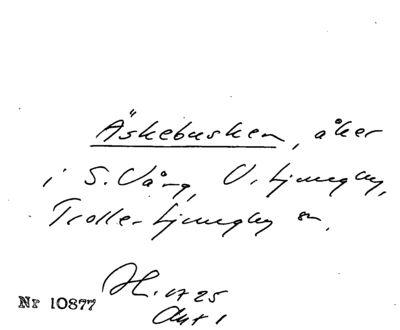 Äskebusken, åker
i S. Vång, V. Ljungby,
Trolle-Ljungby sn.
H. 1725
Akt 1
Nr 10877